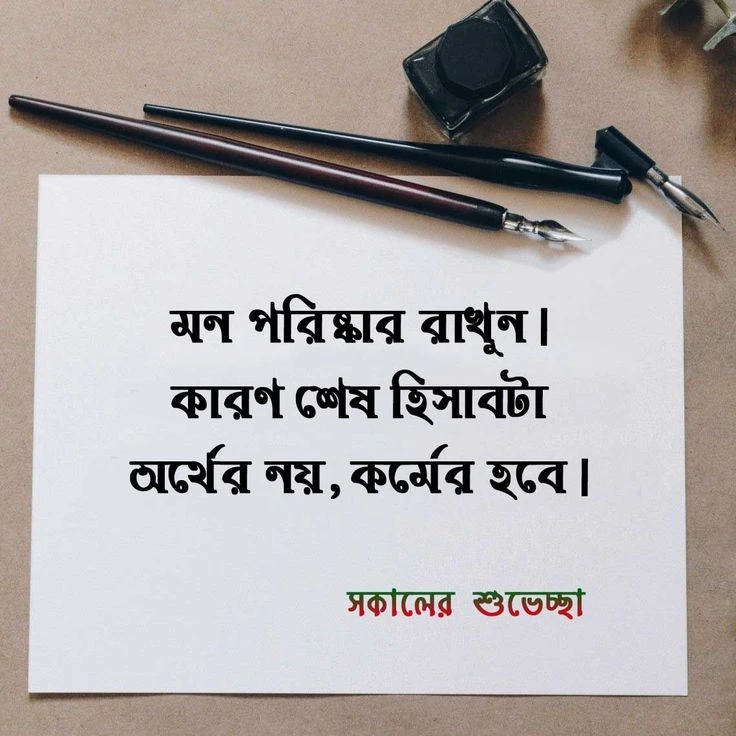 মন পরিষ্কার রাখুন।
কারণ শেষ হিসাবটা
অর্থের নয়, কর্মের হবে।
সকালের শুভেচ্ছা